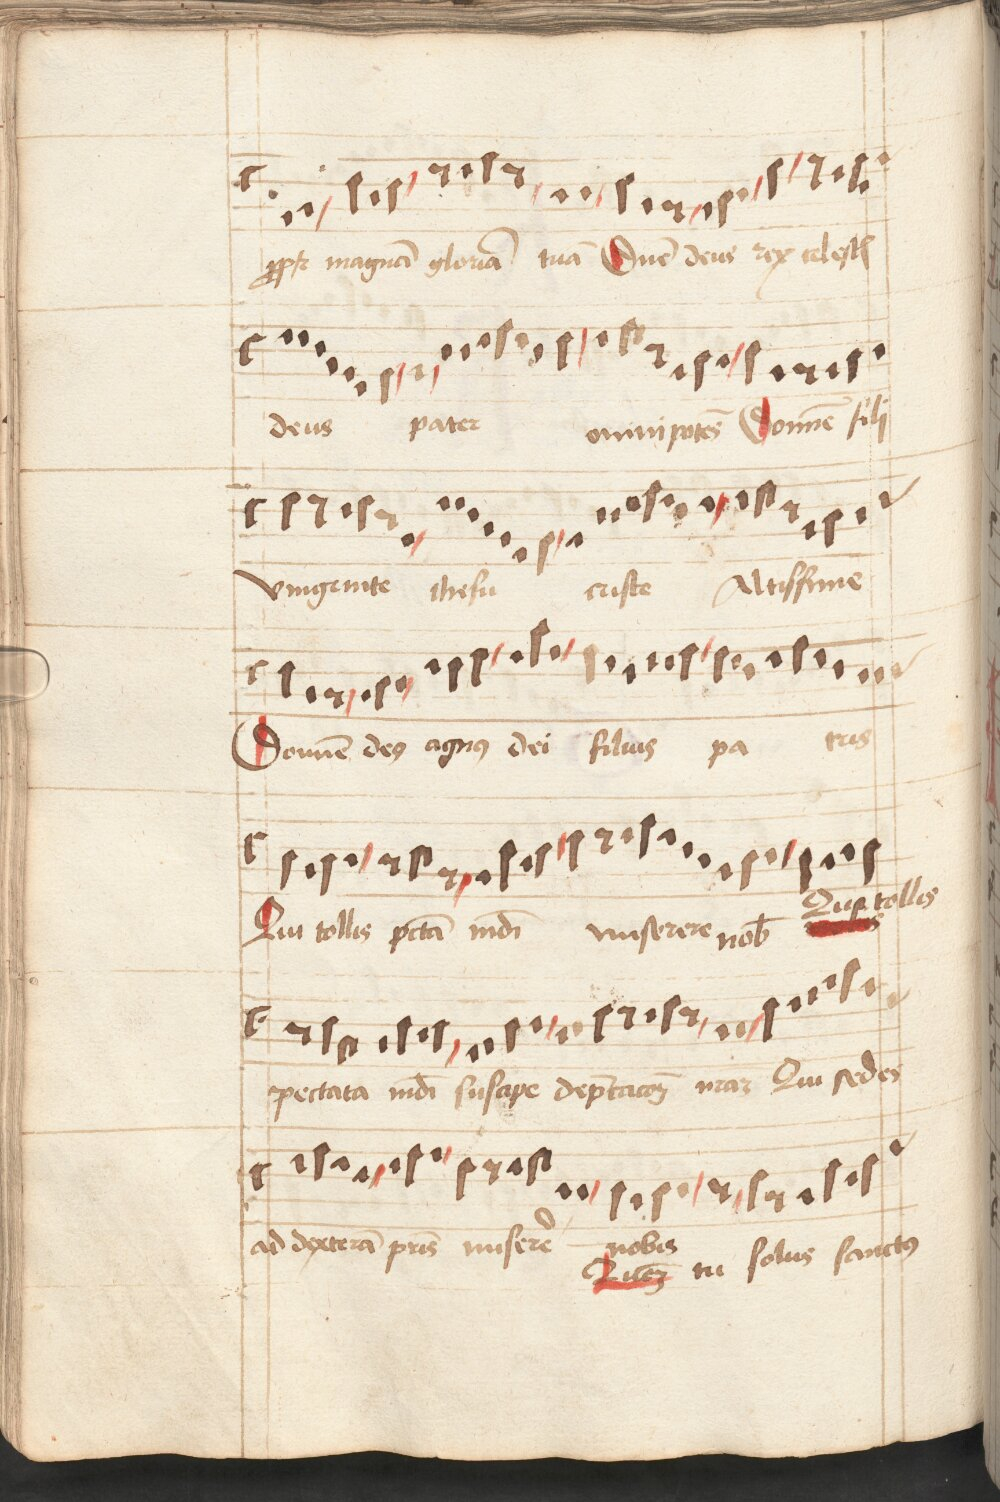 ꝓpt̄ magnā gloriā tuā Dn̄e deus rex celest̄
deus pater om̄ipotēs Domīe fili
vnigenite ihesu criste Altissime
Domīe deꝰ agnꝰ dei filius pa tris
Qui tollis pctā mūdi miserere nob̄ Qui tollis
peccata mūdi suscipe dep̄cacōȝ nr̄aȝ Qui sedes
ad dexterā pr̄is miserē nobis
Qm̄ tu solus sanctꝰ